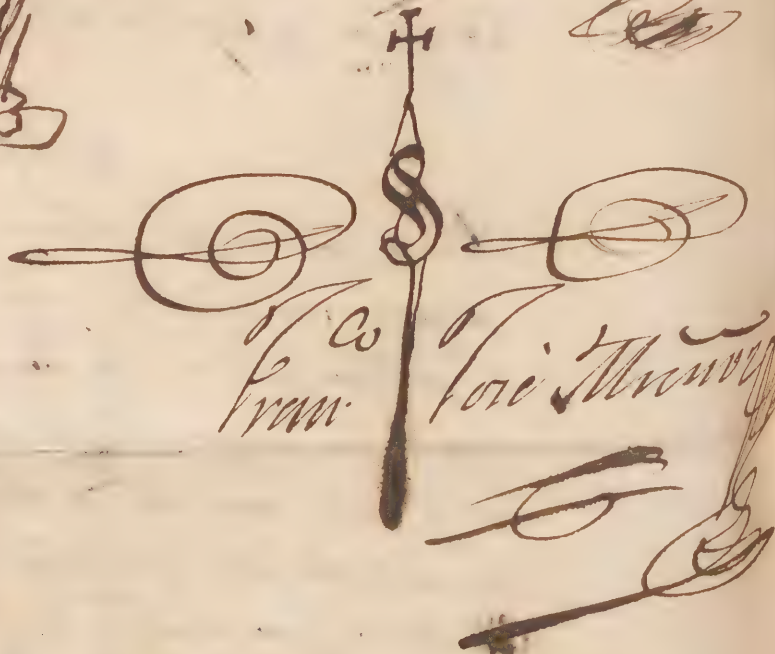 Fran.co José Muñoz